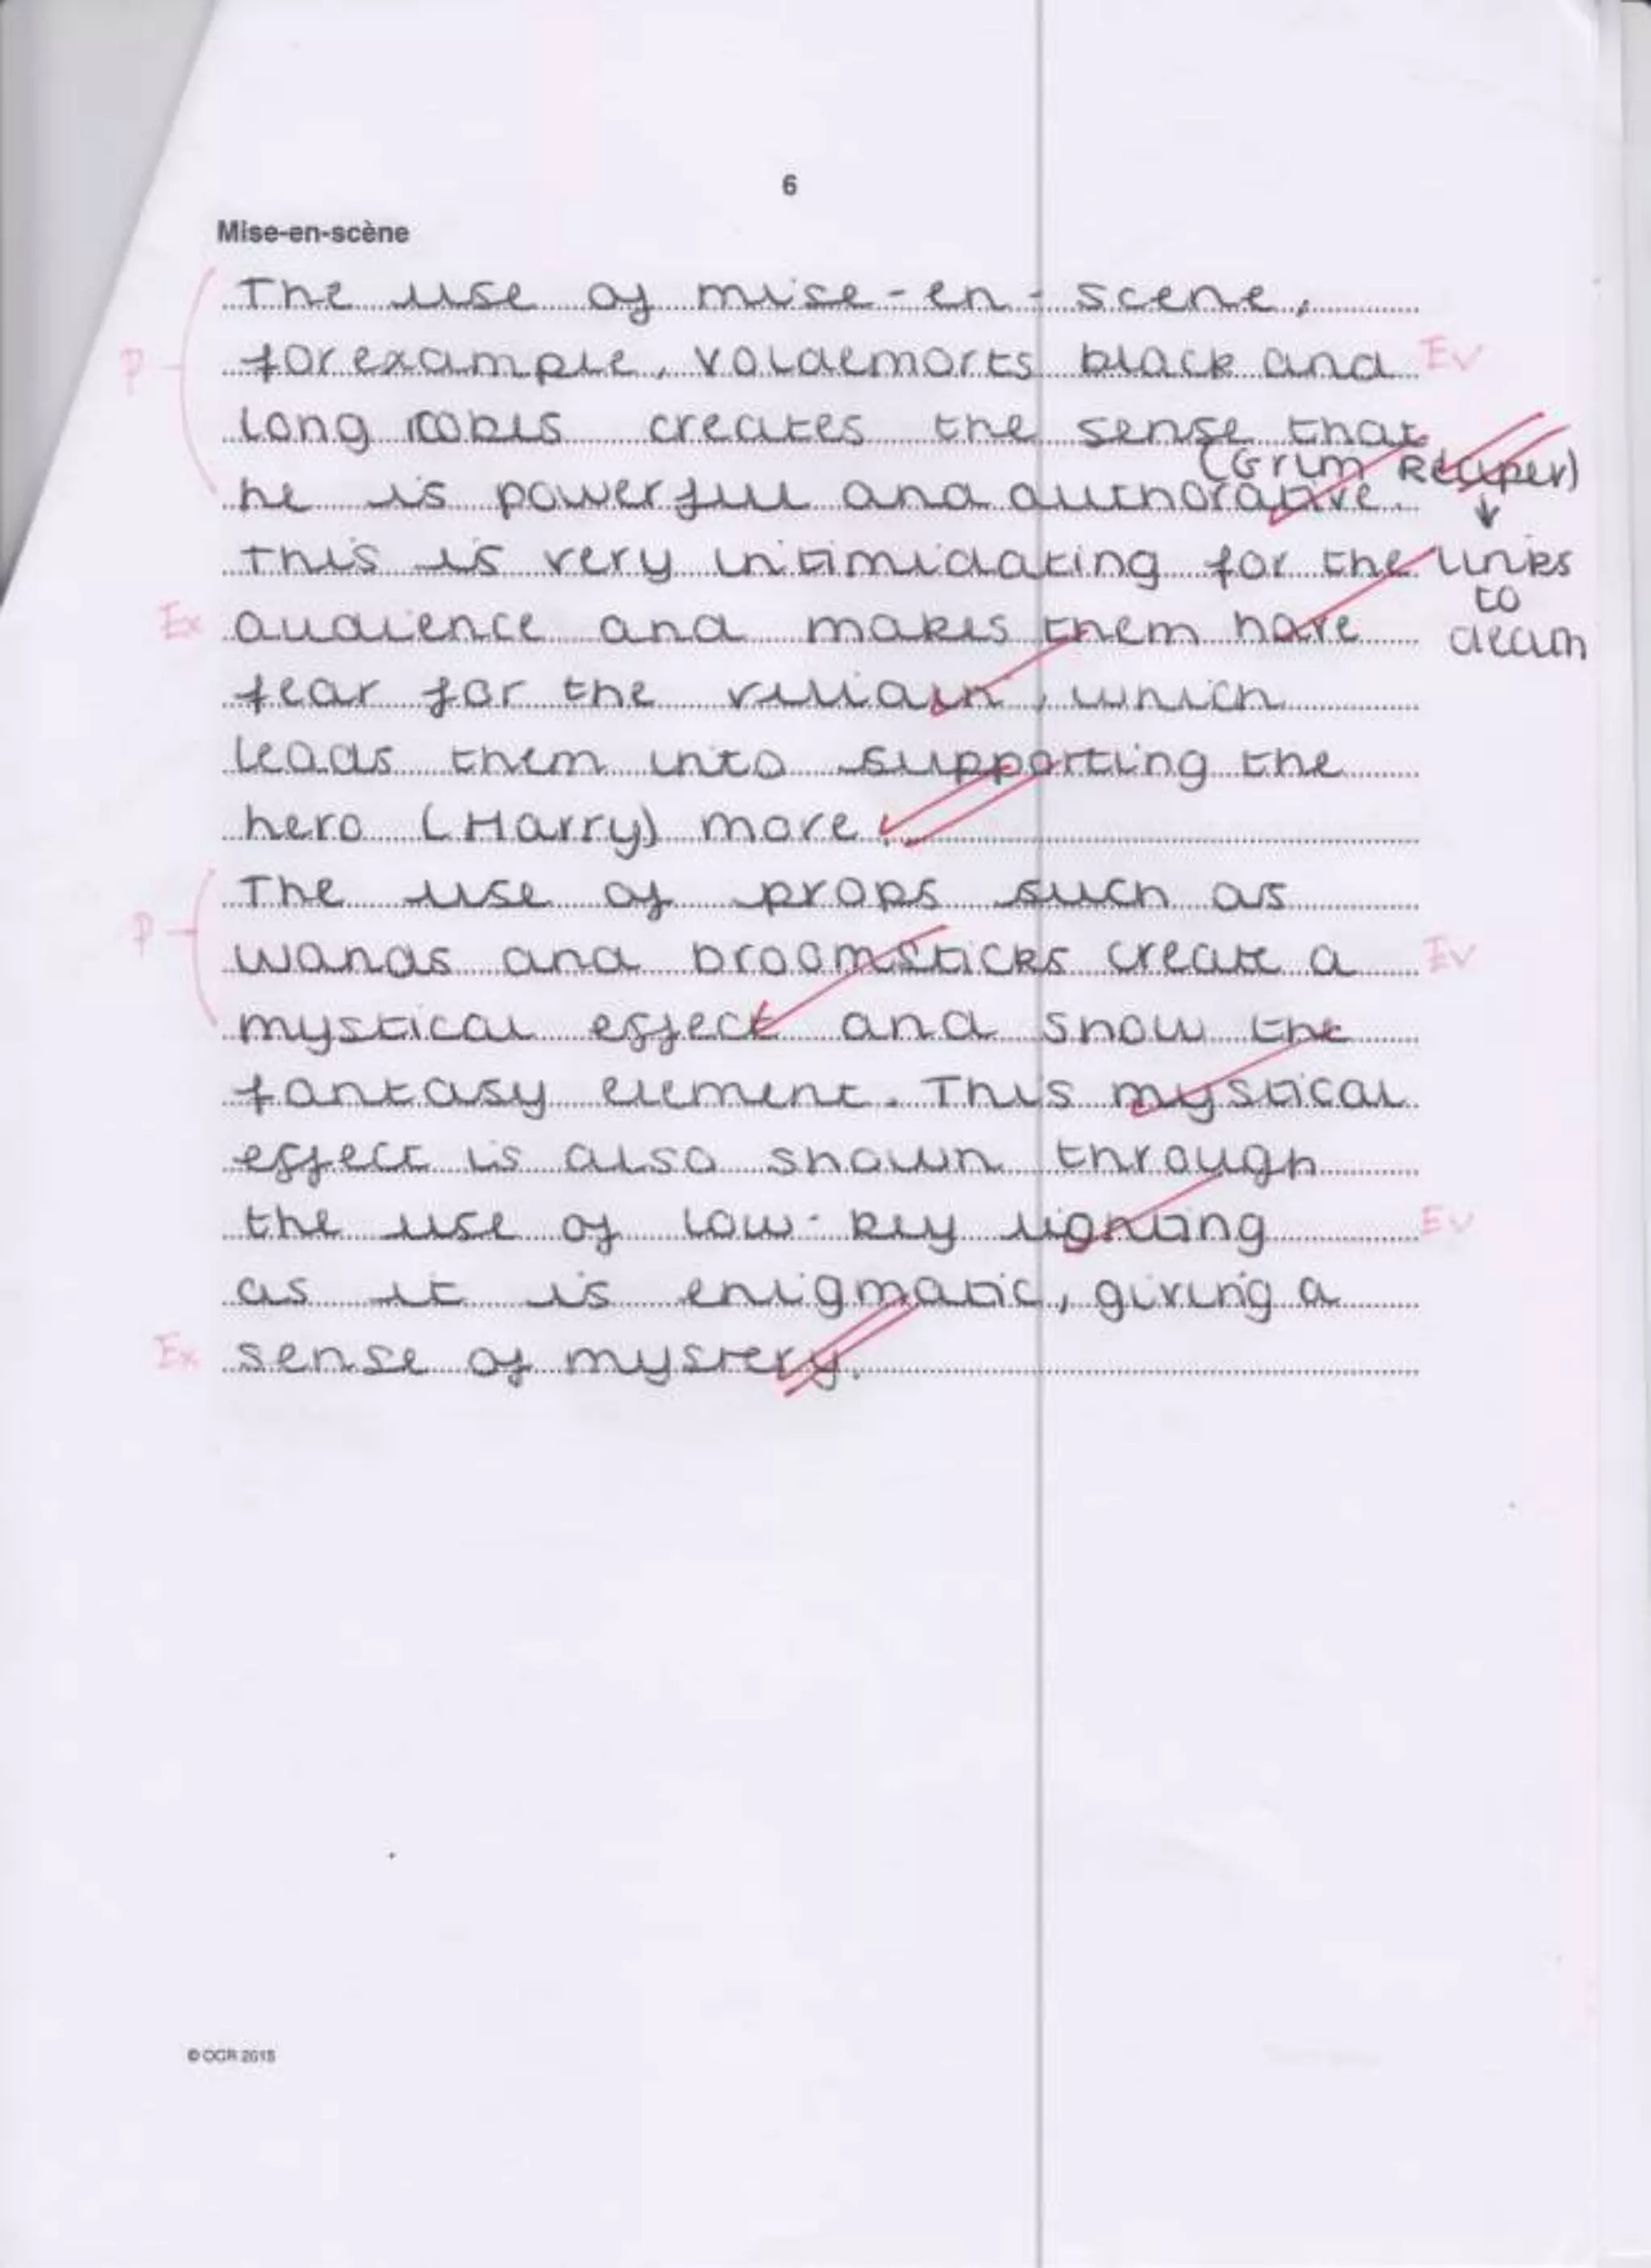 6
Mise-en-scène
The use of mise-en-scene,
P for example, Voldemorts black and Ev
long robes creates the sense that
(Grim Reaper)
he is powerful and authorative. ↓
This is very intimidating for the links
to
Ex audience and makes them have death
fear for the villain, which
leads them into supporting the
hero (Harry) more.
The use of props such as
P wands and broomsticks create a Ev
mystical effect and show the
fantasy element. This mystical
effect is also shown through
the use of low-key lighting Ev
as it is enigmatic, giving a
Ex sense of mystery.
© OCR 2015